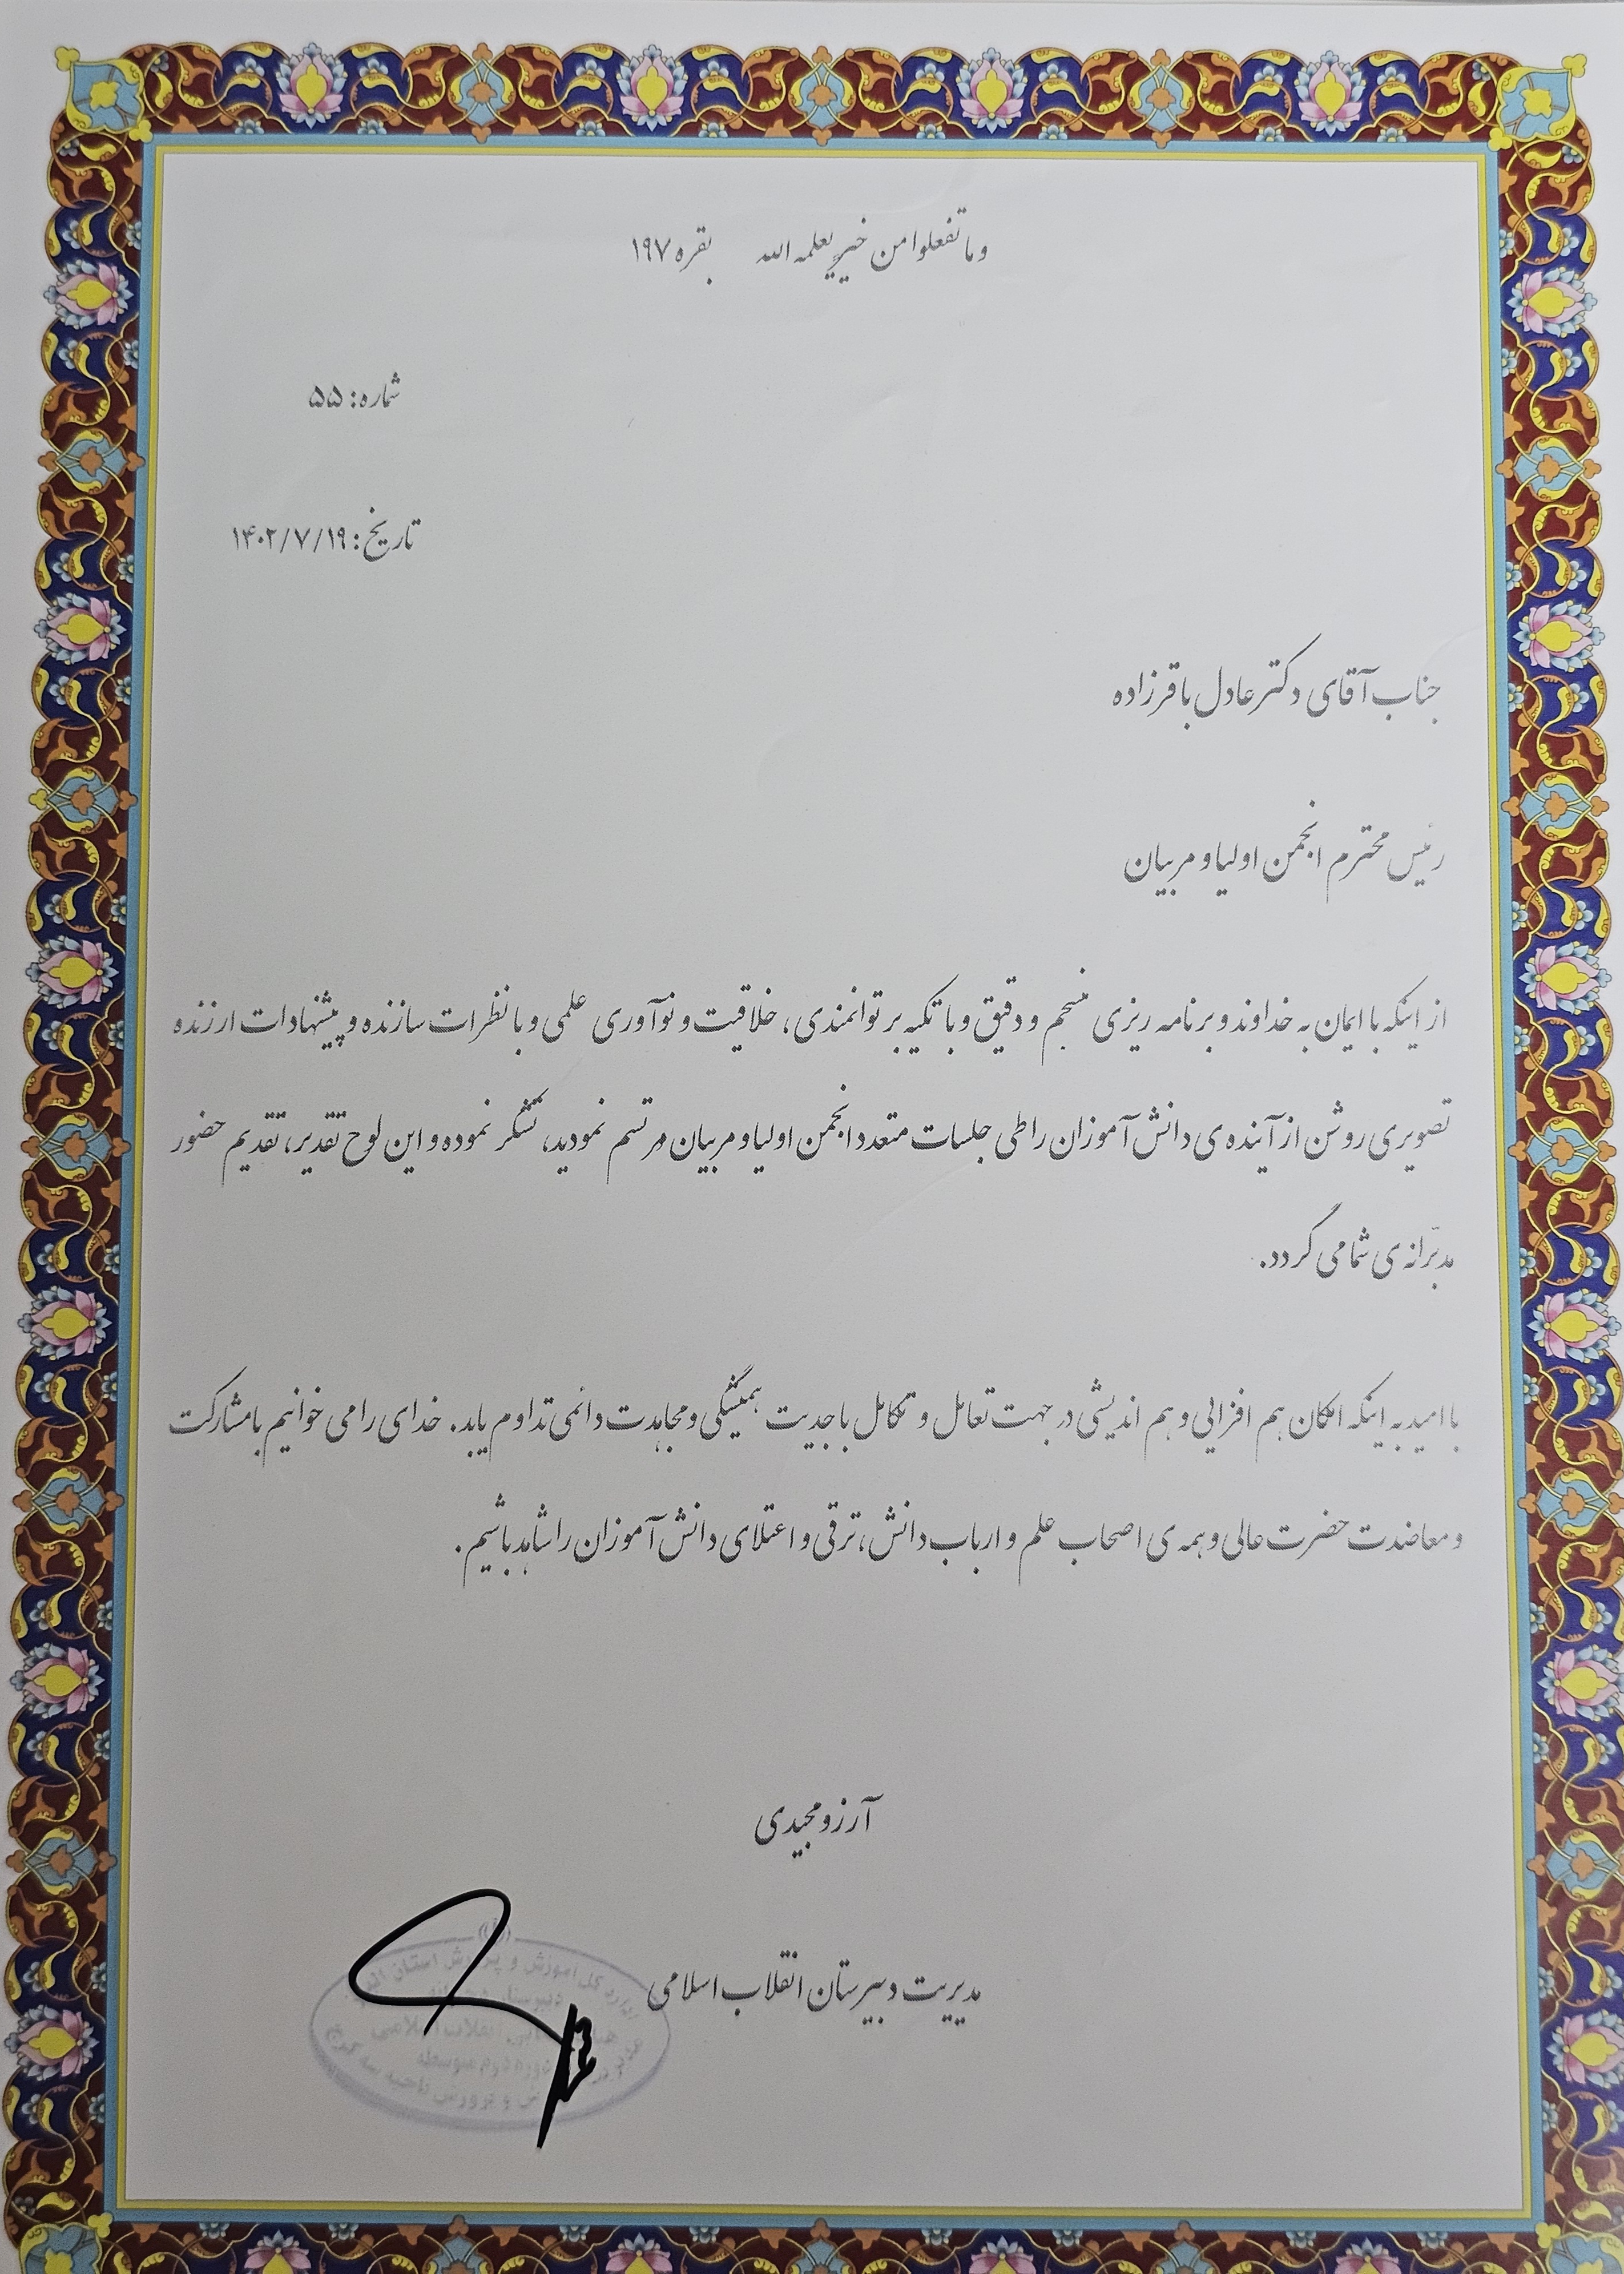 وما تفعلوا من خیر یعلمه الله بقره ۱۹۷
شماره: ۵۵
تاریخ: ۱۴۰۲/۷/۱۹
جناب آقای دکتر عادل باقرزاده
رئیس محترم انجمن اولیا و مربیان
از اینکه با ایمان به خداوند و برنامه ریزی منسجم و دقیق و با تکیه بر توانمندی، خلاقیت و نوآوری علمی و با نظرات سازنده و پیشنهادات ارزنده
تصویری روشن از آینده ی دانش آموزان را طی جلسات متعدد انجمن اولیا و مربیان مرتسم نمودید، تشکر نموده و این لوح تقدیر، تقدیم حضور
مدبّرانه ی شما می گردد.
با امید به اینکه امکان هم افزایی و هم اندیشی در جهت تعامل و تکامل با جدیت همیشگی و مجاهدت دائمی تداوم یابد. خدای را می خوانیم با مشارکت
و معاضدت حضرت عالی و همه ی اصحاب علم و ارباب دانش، ترقی و اعتلای دانش آموزان را شاهد باشیم.
آرزو مجیدی
مدیریت دبیرستان انقلاب اسلامی
کل آموزش و پرورش استان
انقلاب اسلامی
دوره دوم متوسطه
پرورش ناحیه سه کرج